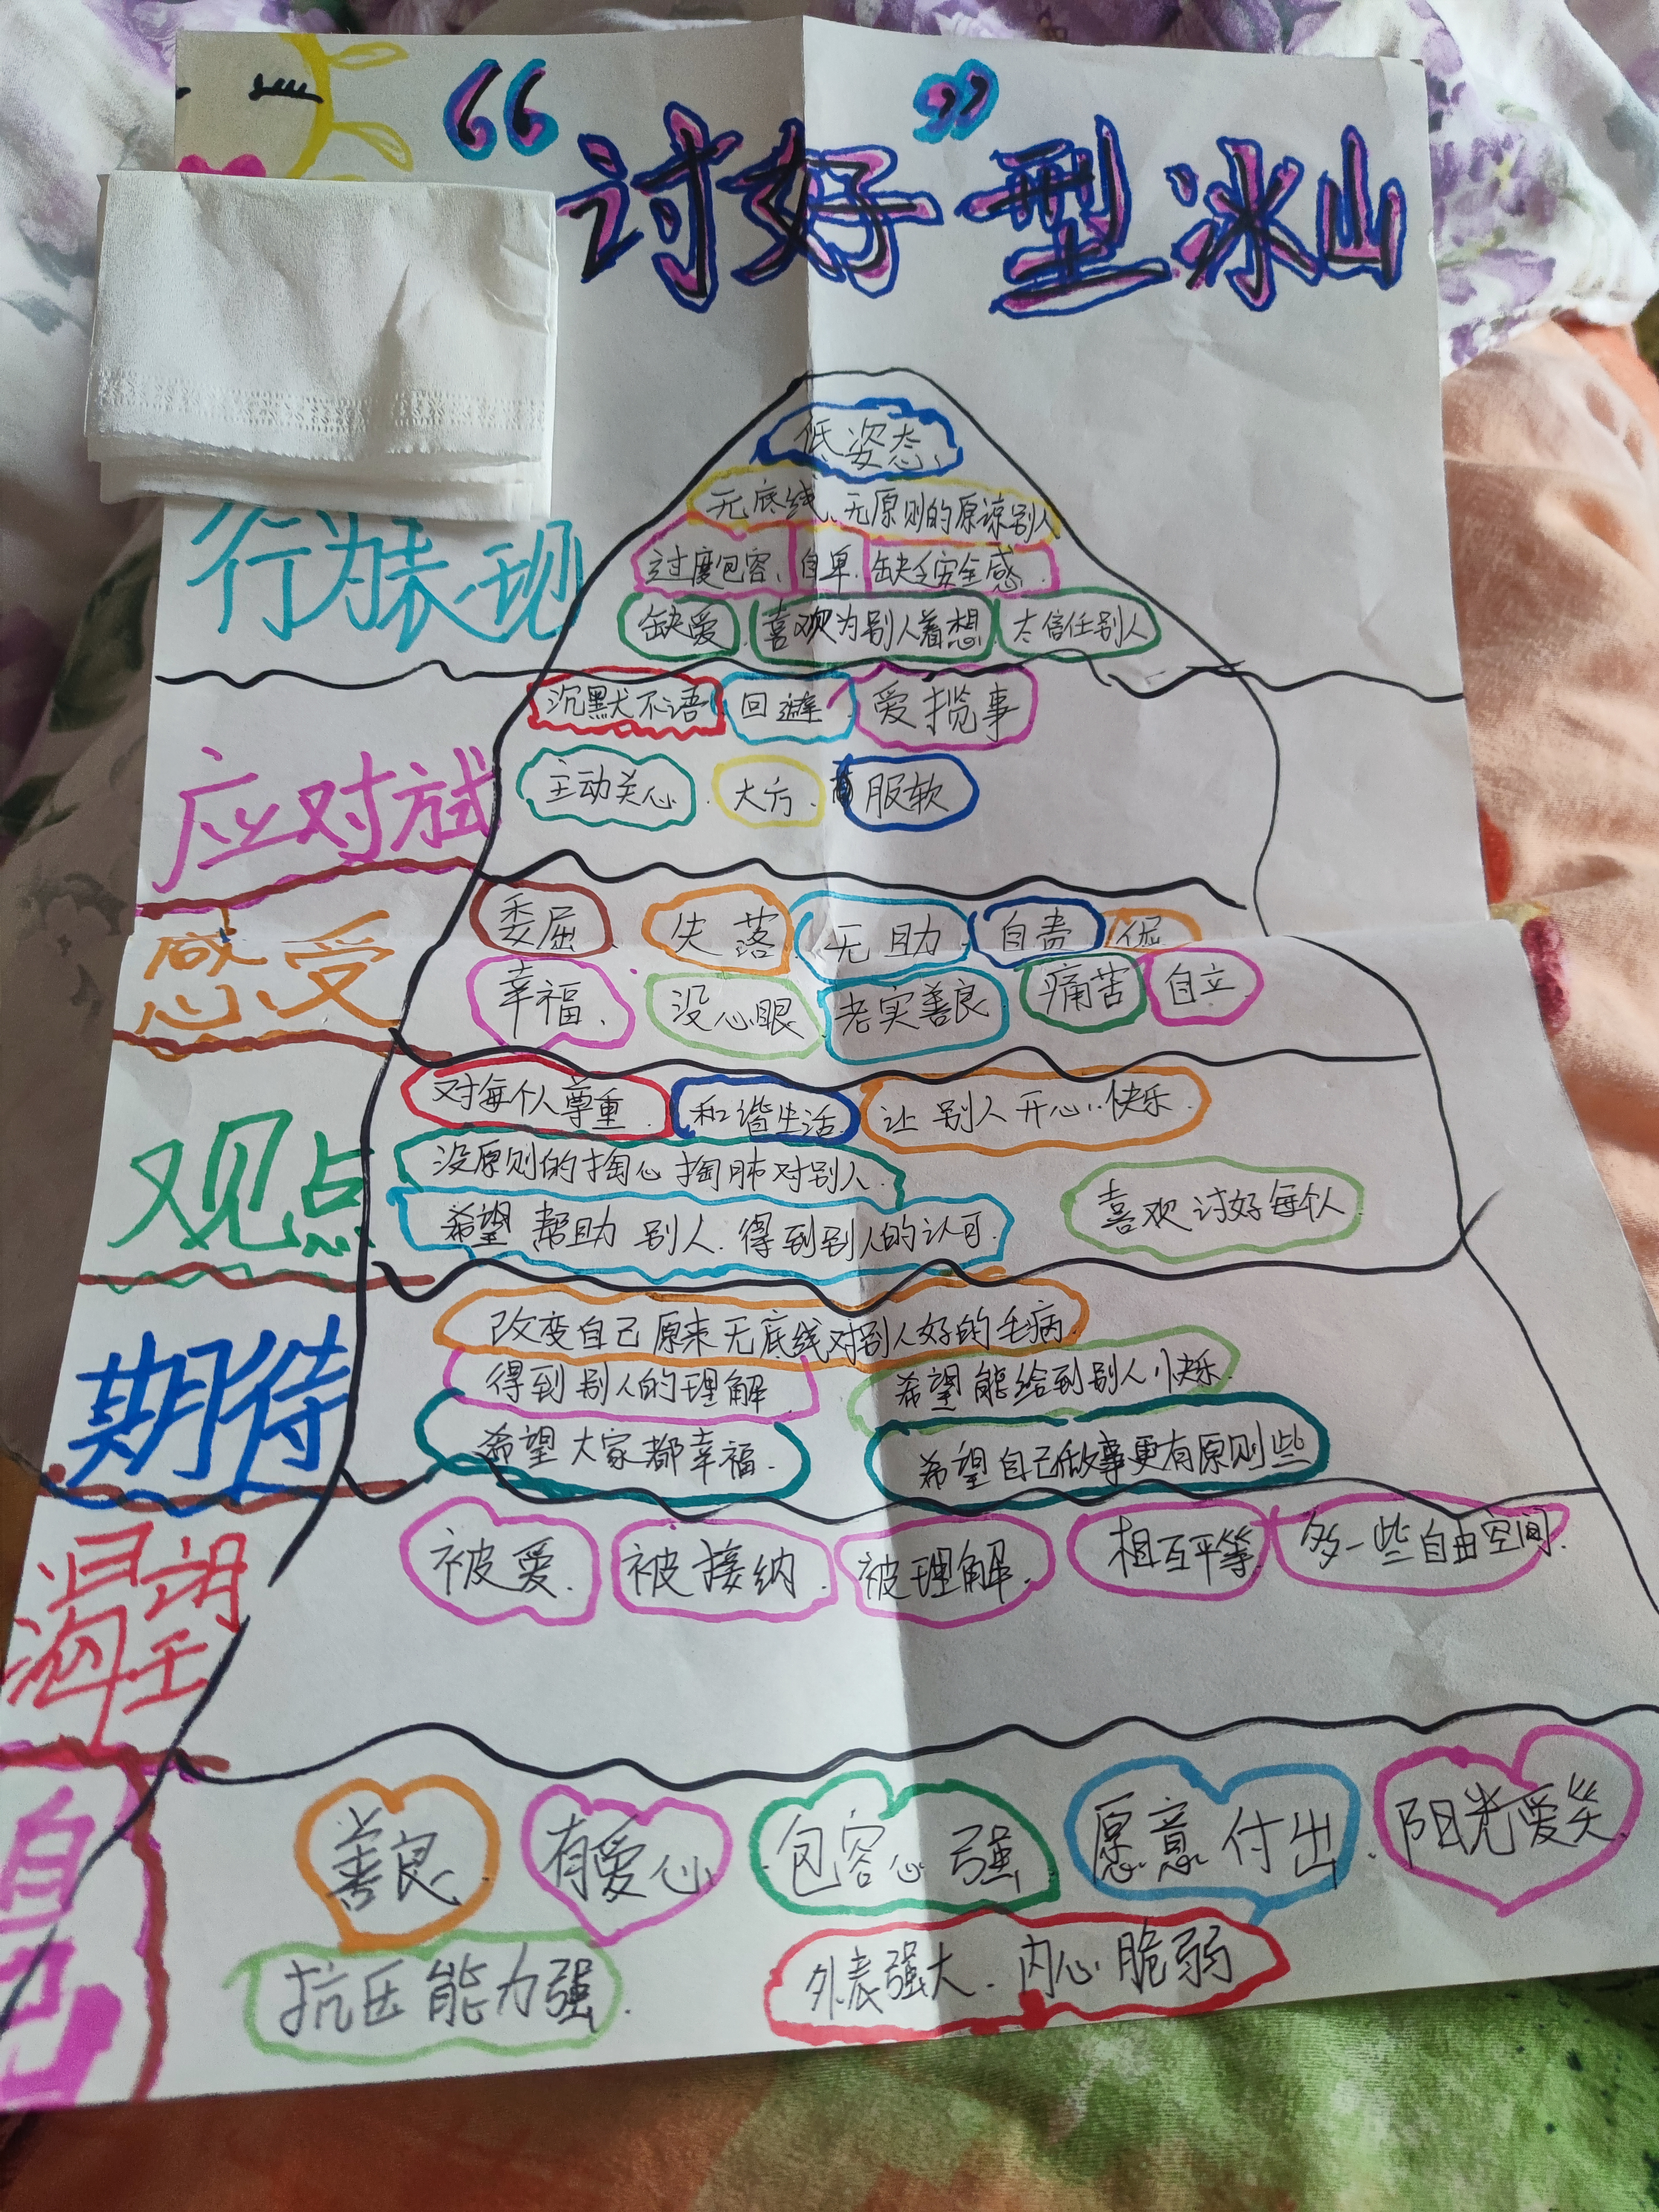 “讨好”型冰山
低姿态
无底线、无原则的原谅别人
行为表现
过度包容、自卑.缺乏安全感.
缺爱.喜欢为别人着想.太信任别人
沉默不语.回避.爱揽事
应对方式
主动关心.大方.服软
感受
委屈.失落.无助.自责.
幸福、没心眼.老实善良.痛苦.自立.
对每个人尊重.和谐生活.让别人开心..快乐.
观点
没原则的掏心掏肺对别人.
喜欢讨好每个人
希望帮助别人.得到别人的认可.
期待
改变自己原来无底线对别人好的毛病.
得到别人的理解
希望能给到别人快乐.
希望大家都幸福.
希望自己做事更有原则些
渴望
被爱.被接纳.被理解.相互平等.多一些自由空间.
自己
善良.有爱心.包容心强.愿意付出.阳光爱笑.
抗压能力强.
外表强大.内心脆弱